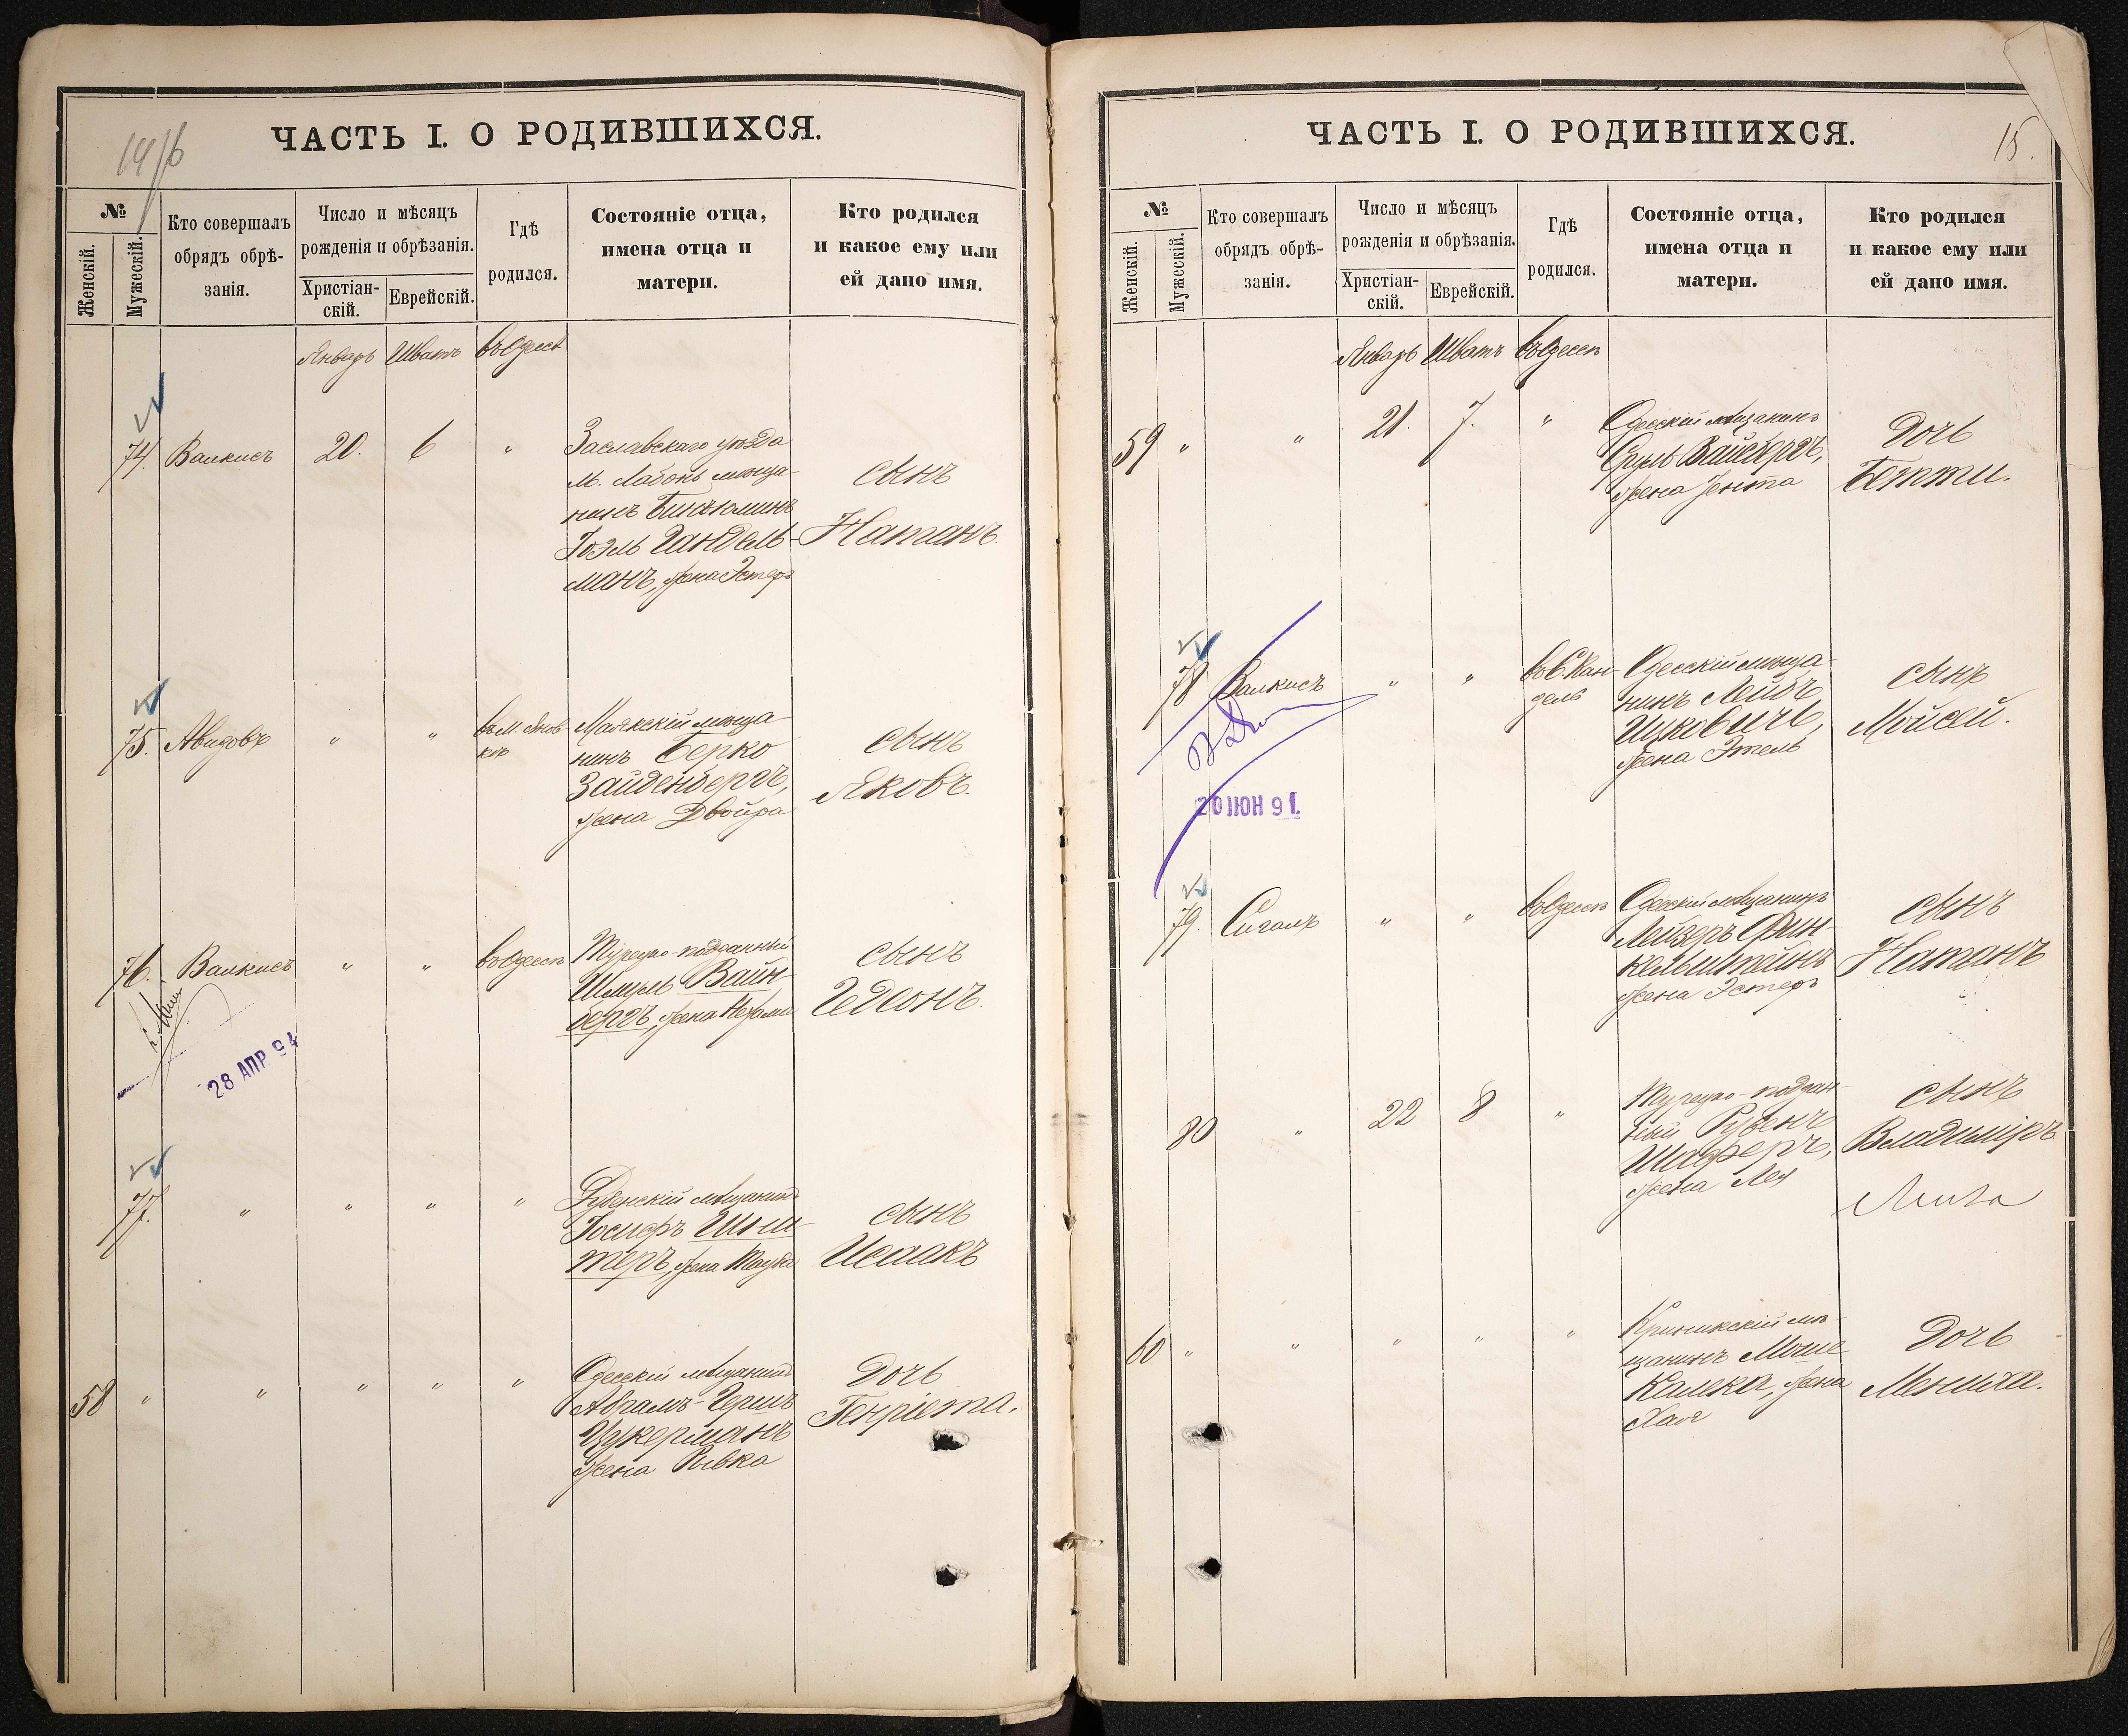 14
ЧАСТЬ I. О РОДИВШИХСЯ.
№
Женскій.
Мужескій.
Кто совершалъ
обрядъ обрѣ-
занія.
Число и мѣсяцъ
рожденія и обрѣзанія.
Христіан-
скій.
Еврейскій.
Гдѣ
родился.
Состояніе отца,
имена отца и
матери.
Кто родился
и какое ему или
ей дано имя.
Январь Шватъ въ Одессѣ
74. Валкисъ 20. 6 "
Заславскаго уѣзда
м. Лабонь мѣща-
нинъ Биньюминъ
Іоэль Гандель-
манъ, жена Эстеръ
сынъ
Натанъ.
75. Авидовъ " "
Маякскій мѣща-
нинъ Берко
Зайденбергъ,
жена Двойра
сынъ
Яковъ.
76. Валкисъ " " въ Одессѣ
Турецко-подданный
Шмуль Вайн-
бергъ, жена Нехама
сынъ
Гедсонъ.
28 АПР 94
77. " " " "
Дубенскій мѣщанинъ
Іосифъ
теръ, жена Тауба
сынъ
Исаакъ
58 " " " " "
Одесскій мѣщанинъ
Абрамъ-Гершъ
Цукерманъ
жена Ривка
Дочь
Генріета.
15.
ЧАСТЬ I. О РОДИВШИХСЯ.
№
Женскій.
Мужескій.
Кто совершалъ
обрядъ обрѣ-
занія.
Число и мѣсяцъ
рожденія и обрѣзанія.
Христіан-
скій.
Еврейскій.
Гдѣ
родился.
Состояніе отца,
имена отца и
матери.
Кто родился
и какое ему или
ей дано имя.
Январь Шватъ въ Одессѣ
59 " " 21. 7. "
Одесскій мѣщанинъ
Сруль Вайсбергъ,
жена Јента
Дочь
Бетти.
78 Валкисъ " " въ С. Кан-
дель
Одесскій мѣща-
нинъ Лейбъ
Ицковичъ,
жена Этель
сынъ
Мойсей.
20 ІЮН 91.
79. Сигалъ " " въ Одессѣ
Одесскій мѣщанинъ
Лейзеръ Фин-
кельштейнъ
жена Эстеръ
сынъ
Натанъ
80 " 22 8 "
Турецко-поддан-
ный Рувенъ
Шаферъ,
жена Лея
сынъ
Владиміръ
60 " " " " "
мѣ-
щанинъ Моше
Калека, жена
Хая
Дочь
Мениха.